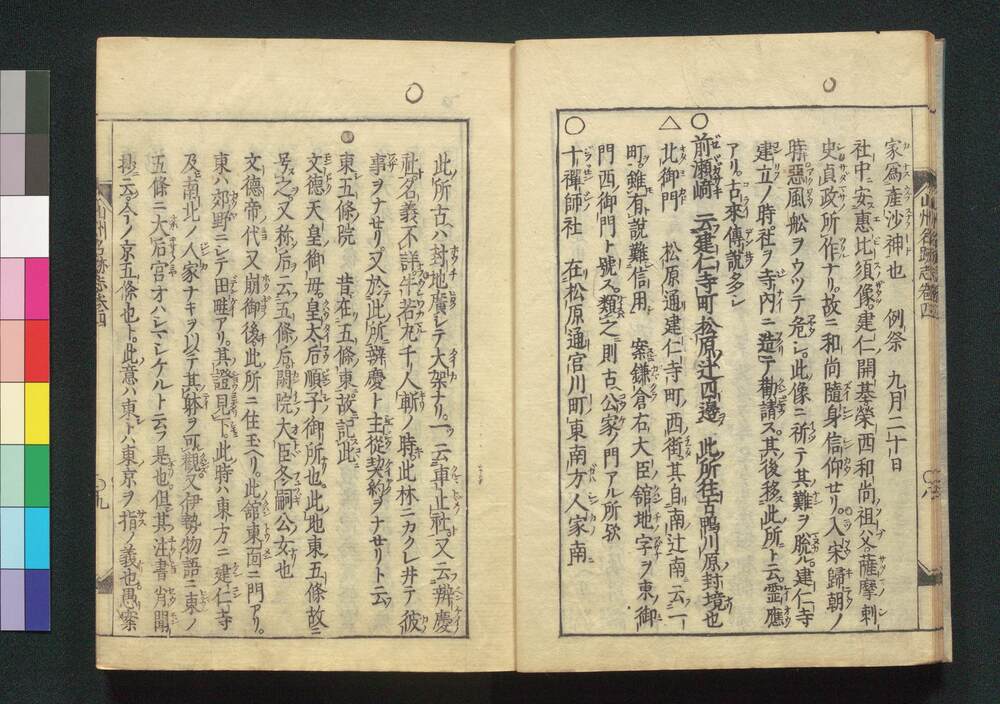 家為産沙神也　例祭　九月二十日
社中ニ安惠比須像。建仁開基榮西和尚祖父薩摩刺
史貞政所作ナリ。故ニ和尚隨身信仰セリ。入宋歸朝ノ
時惡風舩ヲウツテ危シ。此像ニ祈テ其難ヲ脫ル。建仁寺
建立ノ時社ヲ寺內ニ造テ勸請ス。其後移此所ト云。霊應
アリ。古來傳說多シ
○前瀬﨑　云建仁寺町松原辻四邊　此所往古鴨川原封境也
△北御門　松原通建仁寺町西街其自南辻南云一
町雖有說難信用　案鎌倉右大臣舘地字ヲ東御
門西御門ト號ス。類之則古公家ノ門アル所欤
○十禪師社　在松原通宮川町東南方人家南
山州名跡志卷四
○八
此所古ハ封地廣シテ大架ナリ。一云車止社。又云辨慶
社名義不詳牛若丸千人斬ノ時此林ニカクレ井テ彼
事ヲナセリ。又於此所辨慶ト主從契約ヲナセリト云
東五條院　昔在五條東故記此
文德天皇御母。皇太后順子御所也。此地東五條故ニ
号之。又称后云五條后。閑院大臣冬嗣公女也
文德帝代又崩御後此所ニ住玉ヘリ。此舘東面ニ門アリ。
東ハ郊野ニシテ田畦アリ。其證見下。此時ハ東方ニ建仁寺
及南北ノ人家ナキヲ以テ其躰ヲ可觀。又伊勢物語ニ東ノ
五條ニ大后宮オハシマシケルト云フ是也。但其注書肖聞
抄云今ノ京五條也ト。此意ハ東トハ東京ヲ指ノ義也愚案
山州名跡志卷四
○九